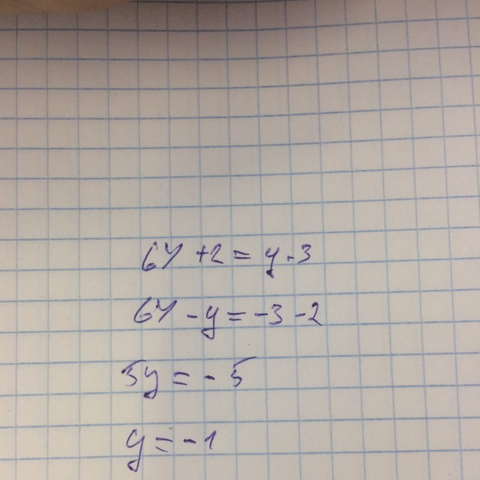 6y + 2 = y - 3
6y - y = -3 - 2
5y = -5
y = -1